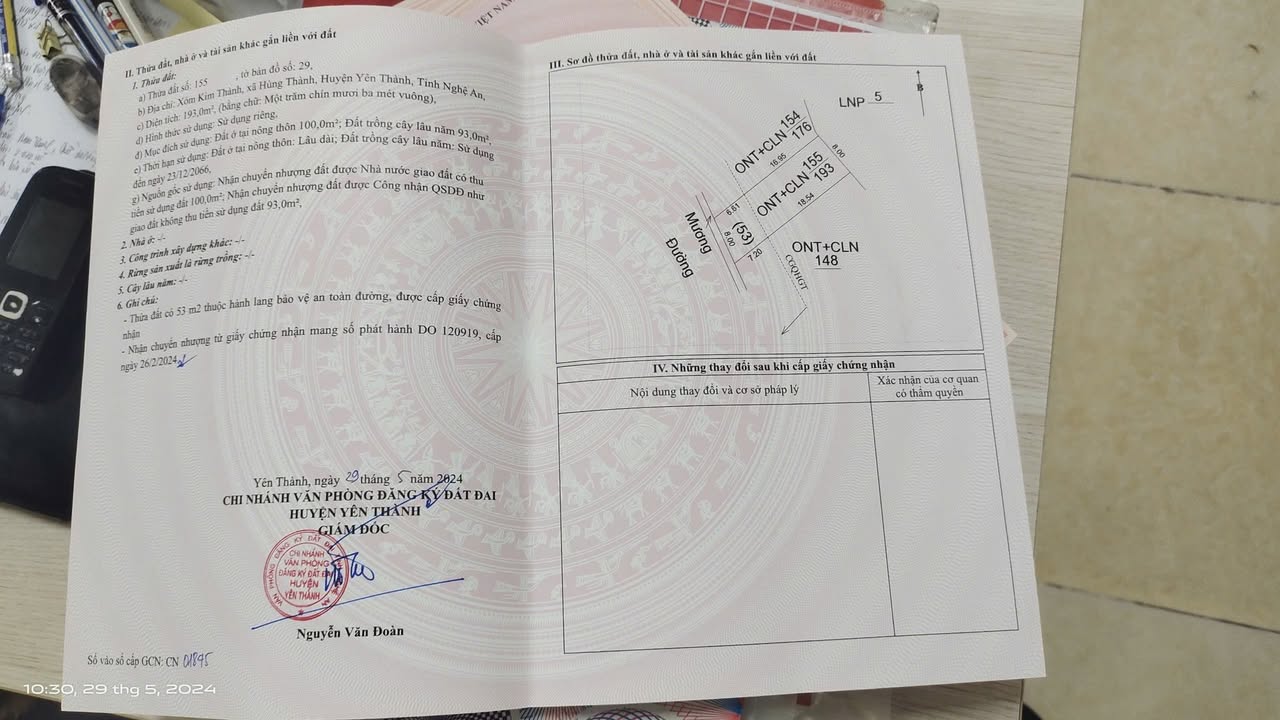 VIỆT NAM
II. Thửa đất, nhà ở và tài sản khác gắn liền với đất
1. Thửa đất:
a) Thửa đất số: 155 , tờ bản đồ số: 29,
b) Địa chỉ: Xóm Kim Thành, xã Hùng Thành, Huyện Yên Thành, Tỉnh Nghệ An,
c) Diện tích: 193,0m², (bằng chữ: Một trăm chín mươi ba mét vuông),
d) Hình thức sử dụng: Sử dụng riêng,
đ) Mục đích sử dụng: Đất ở tại nông thôn 100,0m²; Đất trồng cây lâu năm 93,0m²,
e) Thời hạn sử dụng: Đất ở tại nông thôn: Lâu dài; Đất trồng cây lâu năm: Sử dụng
đến ngày 23/12/2066,
g) Nguồn gốc sử dụng: Nhận chuyển nhượng đất được Nhà nước giao đất có thu
tiền sử dụng đất 100,0m²; Nhận chuyển nhượng đất được Công nhận QSDĐ như
giao đất không thu tiền sử dụng đất 93,0m²,
2. Nhà ở: -/-
3. Công trình xây dựng khác: -/-
4. Rừng sản xuất là rừng trồng: -/-
5. Cây lâu năm: -/-
6. Ghi chú:
- Thửa đất có 53 m2 thuộc hành lang bảo vệ an toàn đường, được cấp giấy chứng
nhận
- Nhận chuyển nhượng từ giấy chứng nhận mang số phát hành DO 120919, cấp
ngày 26/2/2024
Yên Thành, ngày 29 tháng 5 năm 2024
CHI NHÁNH VĂN PHÒNG ĐĂNG KÝ ĐẤT ĐAI
HUYỆN YÊN THÀNH
GIÁM ĐỐC
CHI NHÁNH
VĂN PHÒNG
ĐĂNG KÝ ĐẤT ĐAI
HUYỆN
YÊN THÀNH
Nguyễn Văn Đoàn
Số vào sổ cấp GCN: CN 01845
III. Sơ đồ thửa đất, nhà ở và tài sản khác gắn liền với đất
B
LNP 5
ONT+CLN 154
176
16.95
8.00
ONT+CLN 155
193
18.54
6.61
(53)
8.00
7.20
Mương
Đường
ONT+CLN
148
CGQHGT
IV. Những thay đổi sau khi cấp giấy chứng nhận
Nội dung thay đổi và cơ sở pháp lý
Xác nhận của cơ quan
có thẩm quyền
10:30, 29 thg 5, 2024